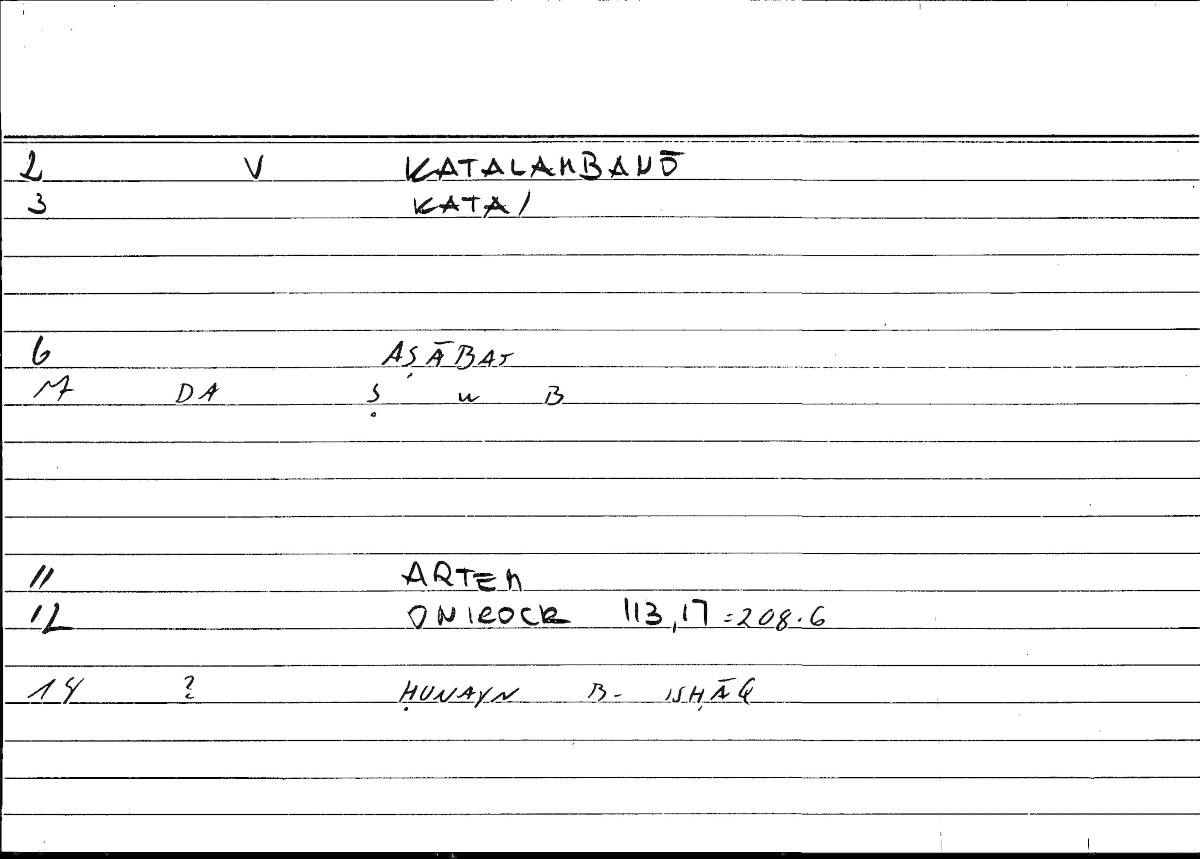 2 V KATALAMBANŌ
3 KATA/
6 AṢĀBAT
M DA Ṣ w B
11 ARTEM
12 ONIROCR 113,17 =208.6
14 ? ḤUNAYN B- ISḤĀQ